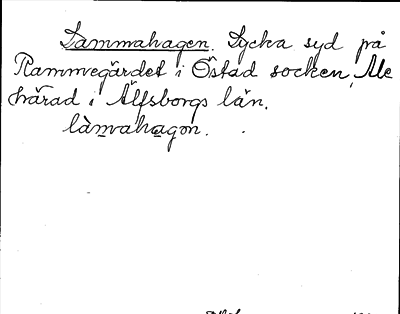 Lammahagen. Lycka syd på
Rammegärdet i Östad socken, Ale
härad i Älfsborgs län.
làmahagon.